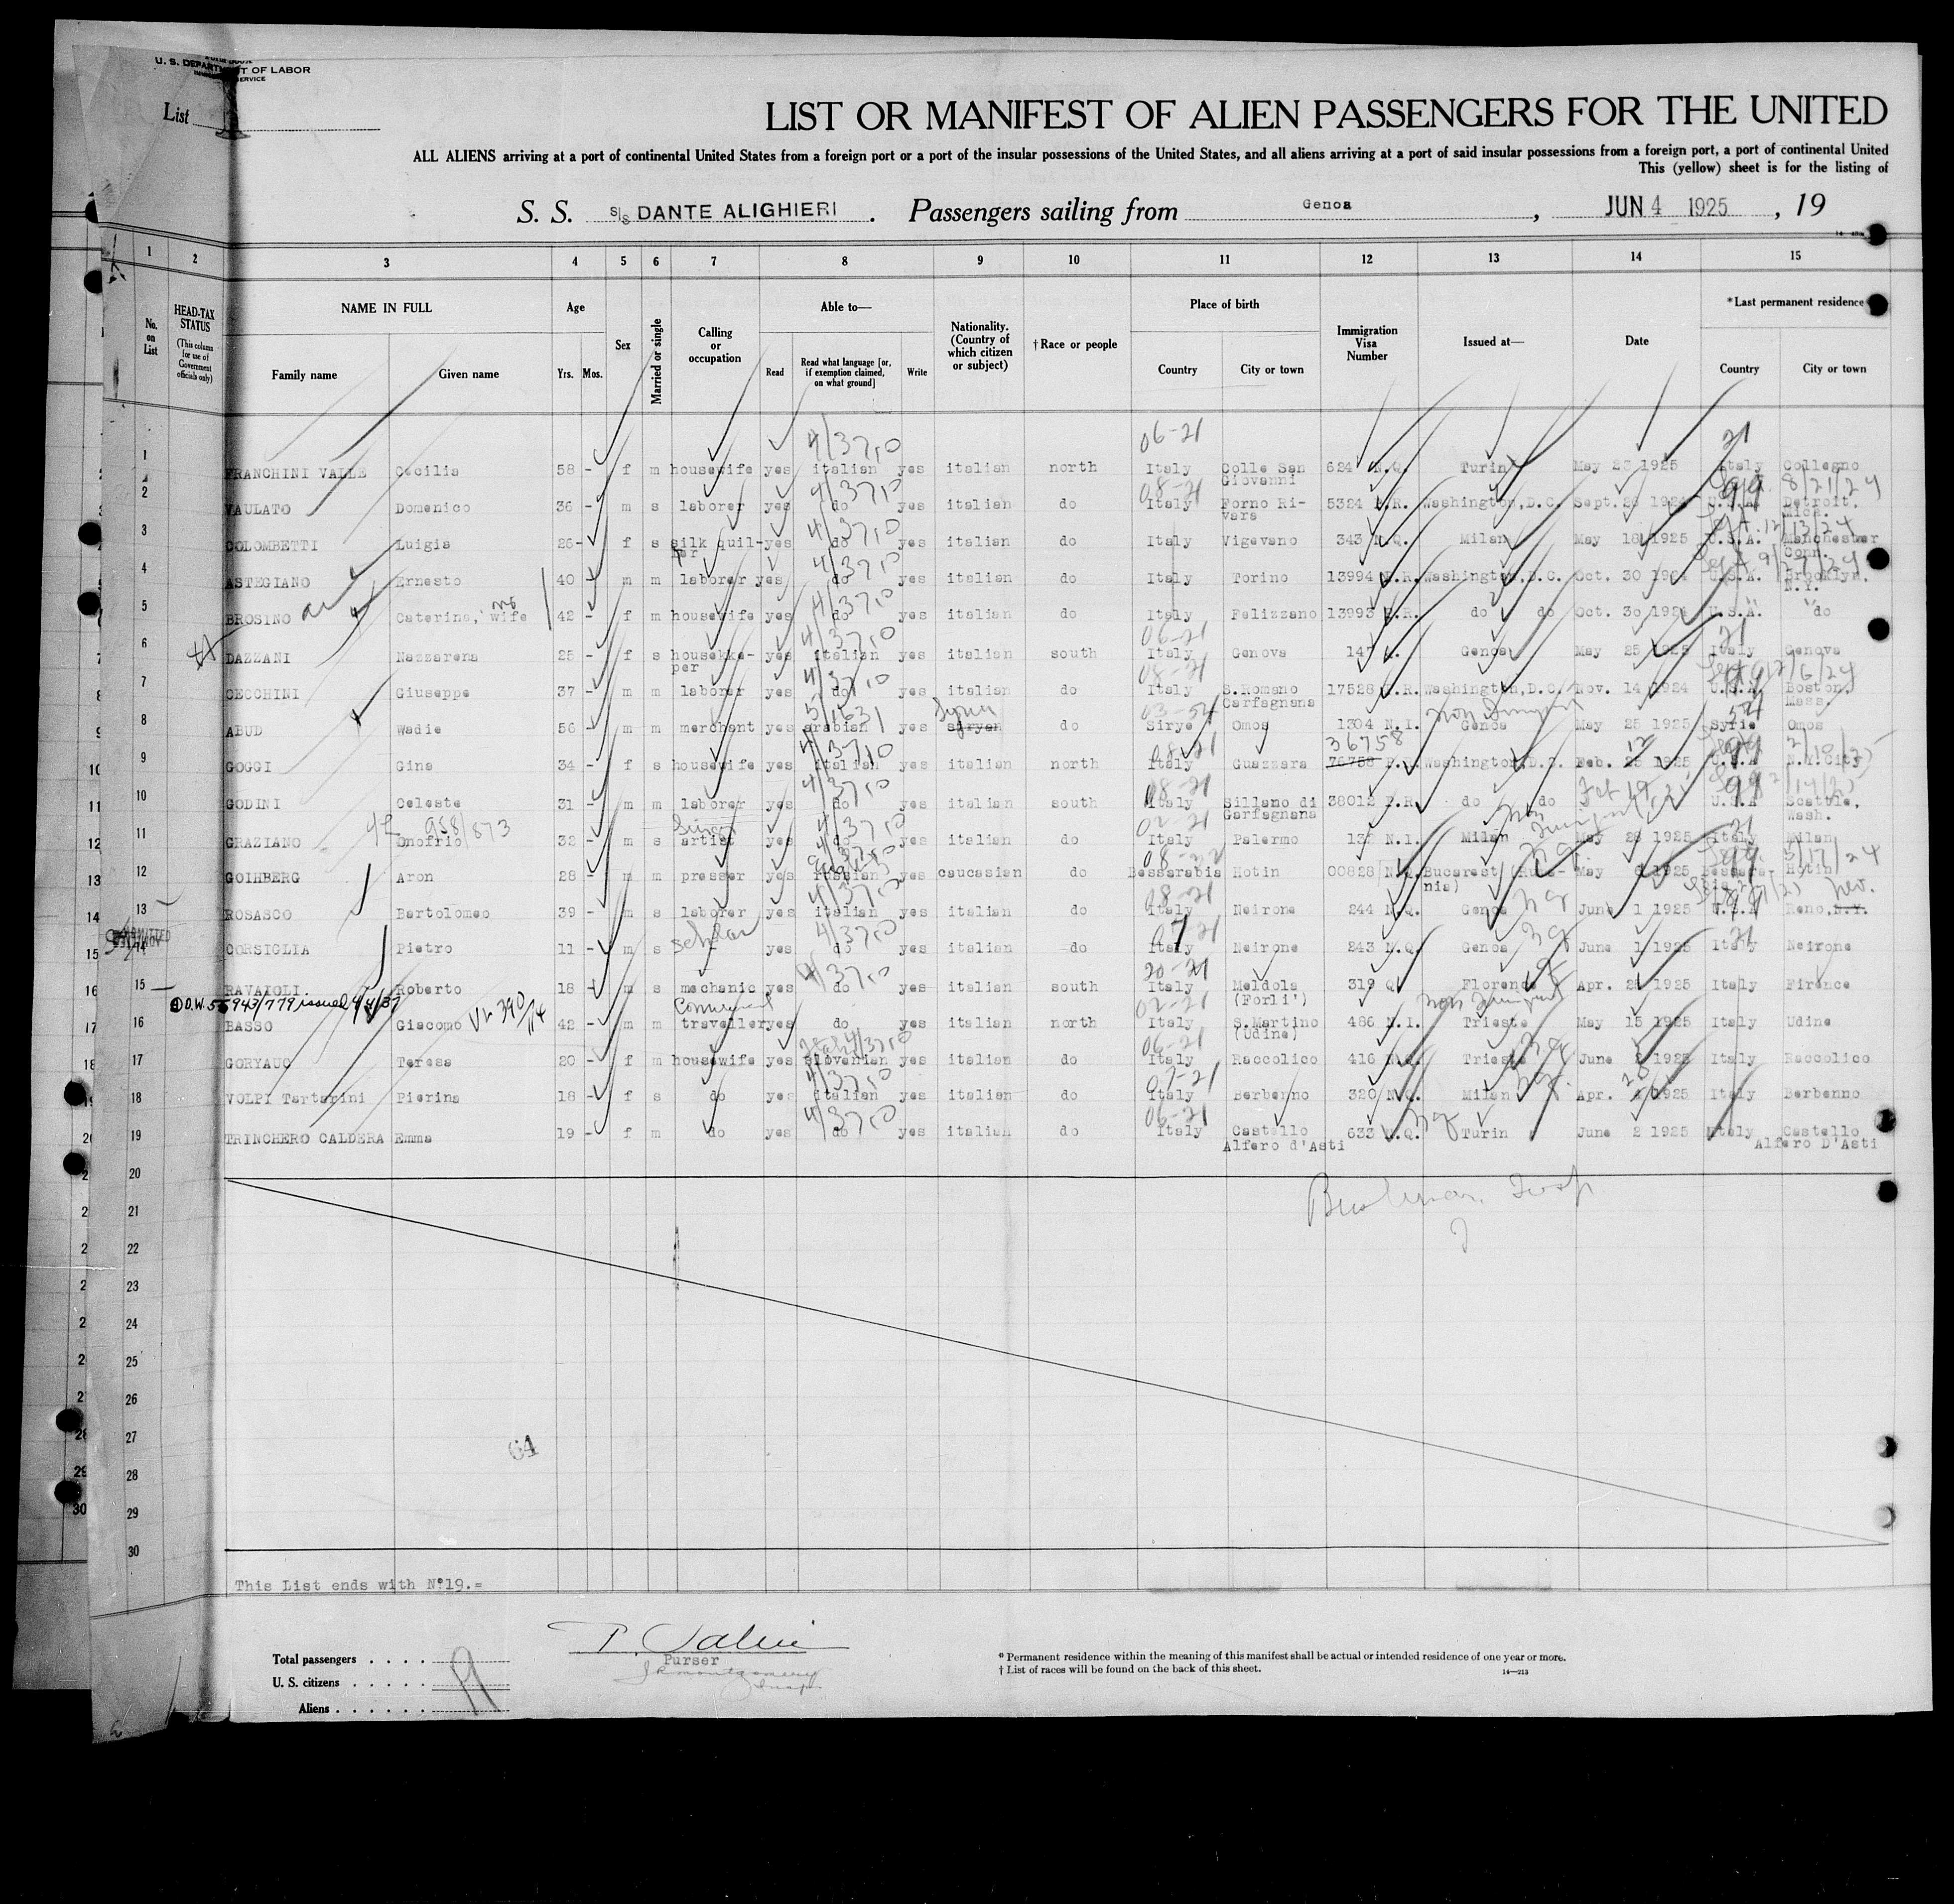 U. S. DEPARTMENT OF LABOR
IMMIGRATION SERVICE
List
LIST OR MANIFEST OF ALIEN PASSENGERS FOR THE UNITED
ALL ALIENS arriving at a port of continental United States from a foreign port or a port of the insular possessions of the United States, and all aliens arriving at a port of said insular possessions from a foreign port, a port of continental United
This (yellow) sheet is for the listing of
S. S. S/S DANTE ALIGHIERI . Passengers sailing from Genoa , JUN 4 1925 , 19
1 2 3 4 5 6 7 8 9 10 11 12 13 14 15
No. on List
HEAD-TAX STATUS (This column for use of Government officials only)
NAME IN FULL Family name Given name
Age Yrs. Mos.
Sex
Married or single
Calling or occupation
Able to— Read Read what language [or, if exemption claimed, on what ground] Write
Nationality. (Country of which citizen or subject)
† Race or people
Place of birth Country City or town
Immigration Visa Number
Issued at—
Date
* Last permanent residence Country City or town
1 FRANCHINI VALLE Cecilia 58 - f m housewife yes italian yes italian north Italy Colle San Giovanni 624 N.Q. Turin May 23 1925 Italy Collegno
2 VAULATO Domenico 36 - m s laborer yes do yes italian do Italy Forno Rivara 5324 N.R. Washington,D.C. Sept. 1924 U.S.A. Detroit, Mich. 8/21/24
3 COLOMBETTI Luigia 26 - f s silk quil-ler yes do yes italian do Italy Vigevano 343 N.Q. Milan May 18 1925 U.S.A. Manchester Conn. 12/13/24
4 ASTEGIANO Ernesto 40 m m laborer yes do yes italian do Italy Torino 13994 N.R. Washington,D.C. Oct. 30 1924 U.S.A. Brooklyn, N.Y. 9/27/24
5 BROSINO Caterina, wife 42 - f m housewife yes do yes italian do Italy Felizzano 13993 N.R. do do Oct. 30 1924 U.S.A. do
6 DAZZANI Nazzarena 25 - f s housekke-per yes italian yes italian south Italy Genova 147 N. Genoa May 25 1925 Italy Genova
7 CECCHINI Giuseppe 37 - m m laborer yes do yes italian do Italy S.Romano Garfagnana 17528 N.R. Washington,D.C. Nov. 14 1924 U.S.A. Boston, Mass.
8 ABUD Wadie 56 - m m merchant yes arabian yes siryan Syrian do Sirye Omos 1304 N.I. Genoa May 25 1925 Syrie Omos
9 GOGGI Gina 34 - f s housewife yes italian yes italian north Italy Guazzara 76758 36758 Washington,D.C. Feb. 1925 U.S.A N.Y.City
10 GODINI Celeste 31 - m m laborer yes do yes italian south Italy Sillano di Garfagnana 38012 P.R. do do U.S.A Seattle, Wash.
11 GRAZIANO Onofrio 32 - m s artist Singer yes do yes italian do Italy Palermo 132 N.I. Milan May 28 1925 Italy Milan
12 GOIHBERG Aron 28 - m m presser yes russian yes caucasian do Bessarabia Hotin 00828 N.Q. Bucarest (Rumania) May 6 1925 Hotin
13 ROSASCO Bartolomeo 39 - m s laborer yes italian yes italian do Italy Neirone 244 N.Q. Genoa June 1 1925 U.S.A Reno, N.Y. Nev.
14 CORSIGLIA Pietro 11 - m s scholar yes do yes italian do Italy Neirone 243 N.Q. Genoa June 1 1925 Italy Neirone
15 RAVAIOLI Roberto 18 - m s mechanic yes do yes italian south Italy Meldola (Forli') 319 Q Florence Apr. 28 1925 Italy Firence
D.W. 55 943/779 issued 4/4/37
16 BASSO Giacomo 42 - m m Commercial traveller yes do yes italian north Italy S.Martino (Udine) 486 N.I. Trieste May 15 1925 Italy Udine
17 GORYAUC Teresa 20 - f m housewife yes slovenian yes italian do Italy Raccolico 416 N.Q. Trieste June 2 1925 Italy Raccolico
18 VOLPI Tartarini Pierina 18 - f s do yes italian yes italian do Italy Berbenno 320 N.Q. Milan Apr. 1925 Italy Berbenno
19 TRINCHERO CALDERA Emma 19 - f m do yes do yes italian do Italy Castello Alfero d'Asti 633 N.Q. Turin June 2 1925 Italy Castello Alfero D'Asti
20
21
22
23
24
25
26
27
28
29
30
64
This List ends with N°19.=
Total passengers . . . .
U. S. citizens . . . . .
Aliens . . . . . .
19
Purser
* Permanent residence within the meaning of this manifest shall be actual or intended residence of one year or more.
† List of races will be found on the back of this sheet.
14—213